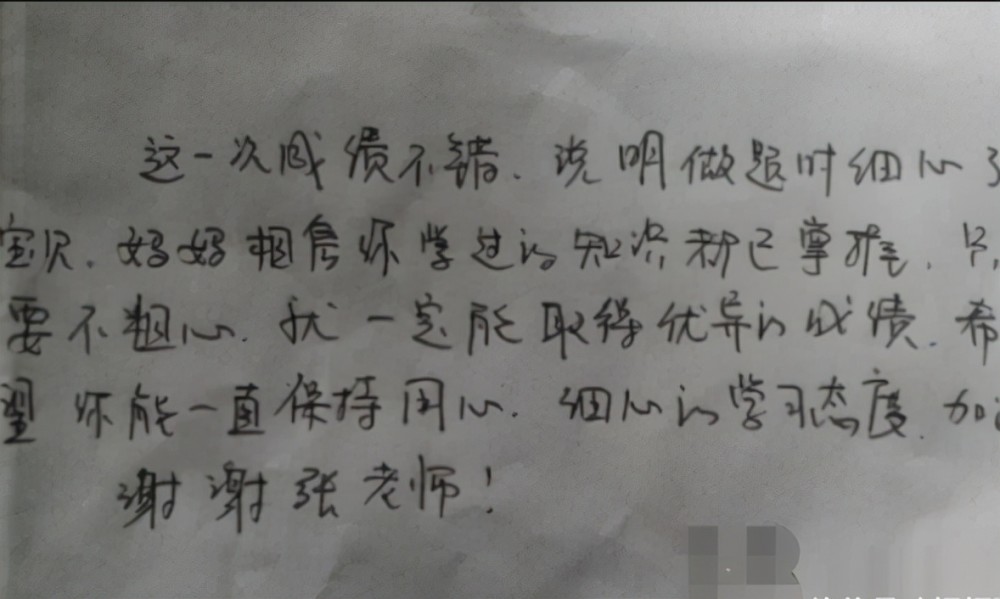 这一次成绩不错、说明做题时细心了
宝贝、妈妈相信你学过的知识都已掌握、只
要不粗心、就一定能取得优异的成绩、希
望你能一直保持用心、细心的学习态度、加
谢谢张老师！